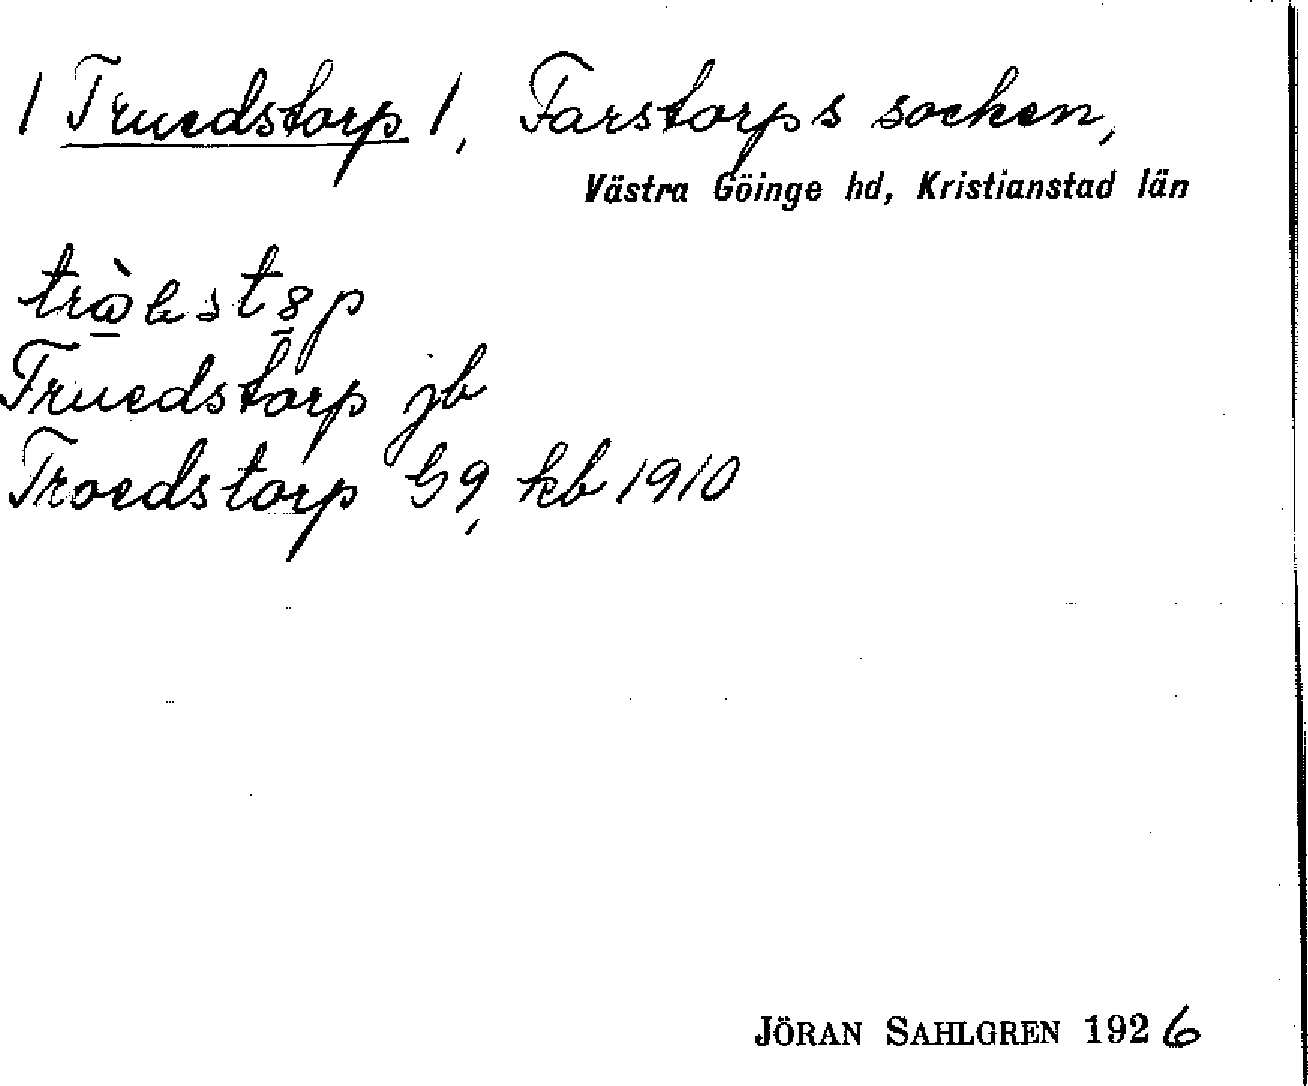 / Truedstorp /, Farstorps socken,
Västra Göinge hd, Kristianstad län
Truedstorp jb
Troedstorp G9, kb 1910
JÖRAN SAHLGREN 1926